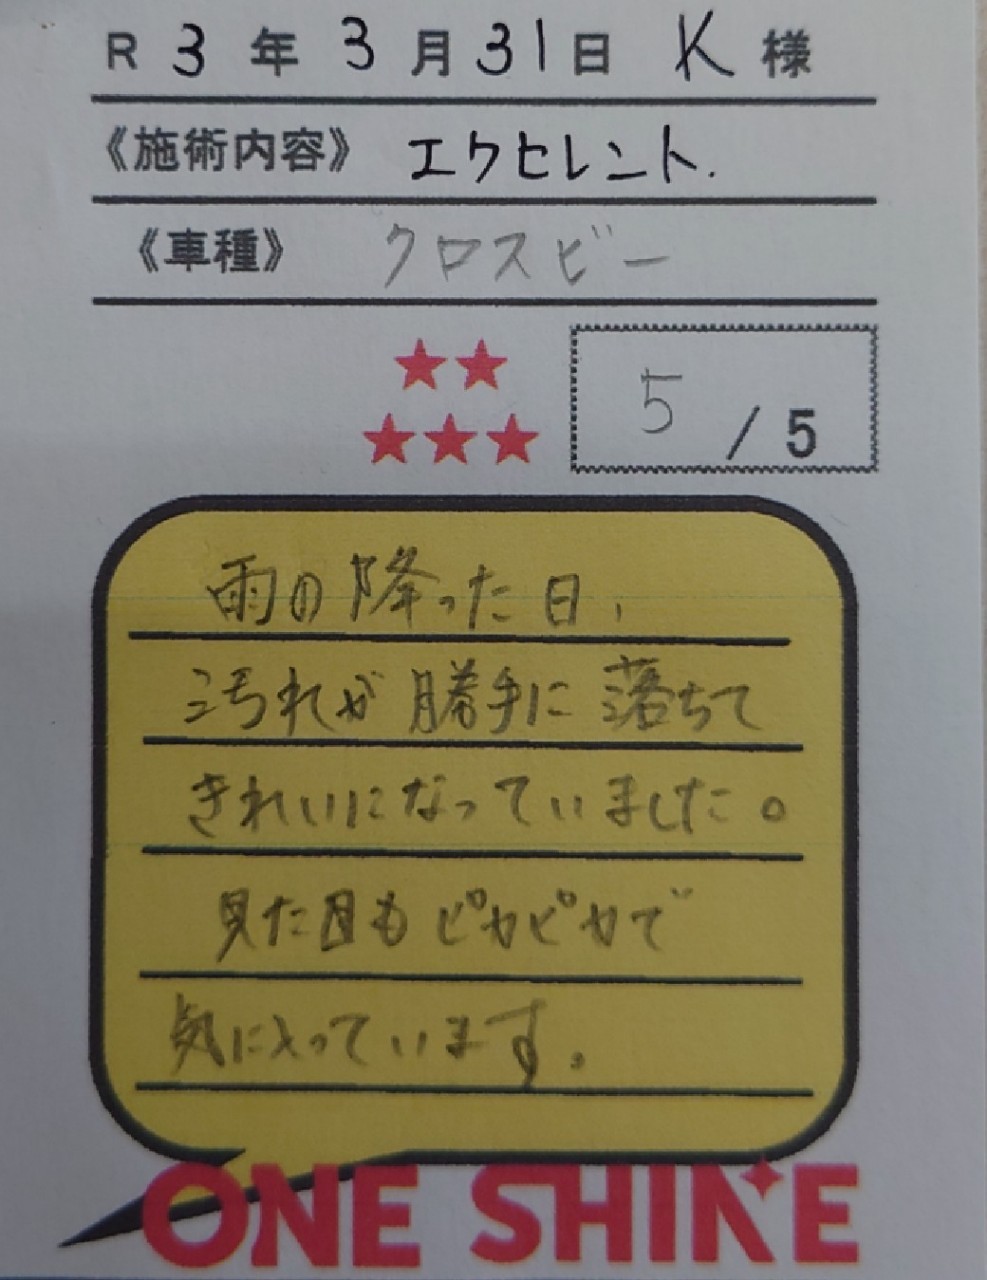 R 3 年 3 月 31 日 K 様
《施術内容》 エクセレント.
《車種》 クロスビー
★★
★★★
5 / 5
雨の降った日、
汚れが勝手に落ちて
きれいになっていました。
見た目もピカピカで
気に入っています。
ONE SHINE